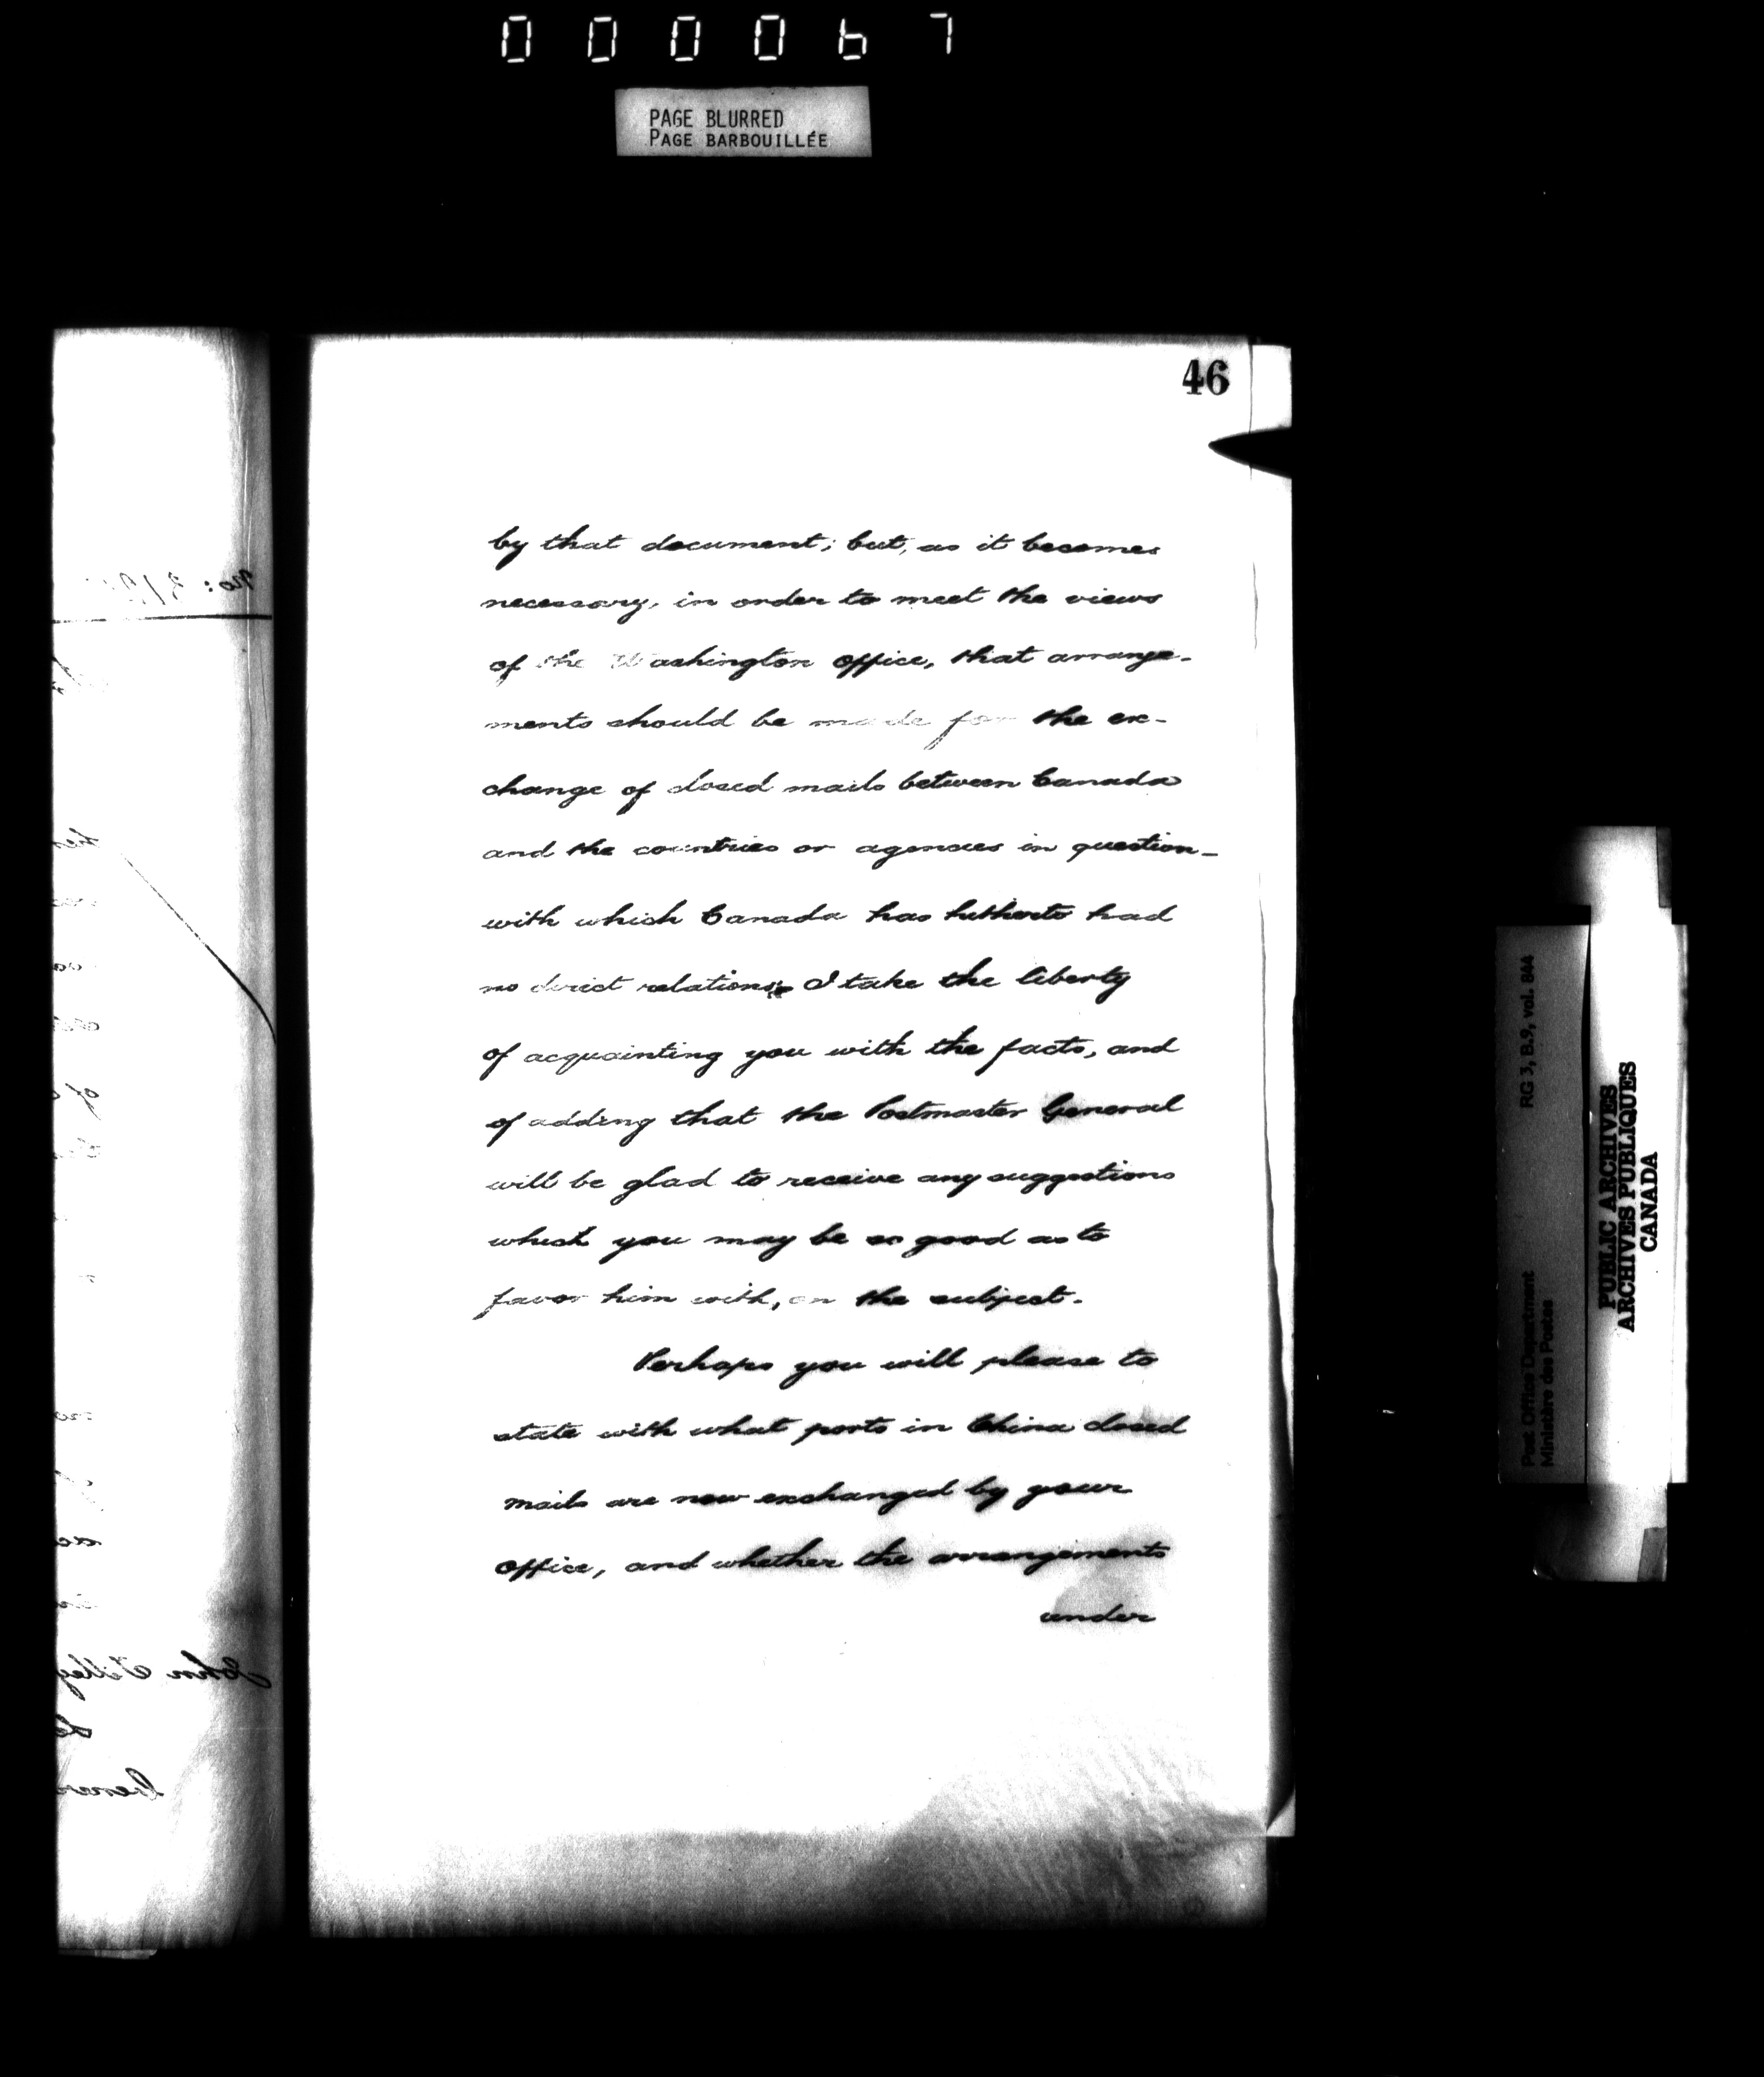 000067
PAGE BLURRED
PAGE BARBOUILLÉE
46
by that document; but, as it becomes
necessary, in order to meet the views
of the Washington office, that arrange-
ments should be made for the ex-
change of closed mails between Canada
and the countries or agencies in question-
with which Canada has hitherto had
no direct relations, I take the liberty
of acquainting you with the facts, and
of adding that the Postmaster General
will be glad to receive any suggestions
which you may be so good as to
favor him with, on the subject.
Perhaps you will please to
state with what ports in China closed
mails are now exchanged by your
office, and whether the arrangements
under
No:
John Tilley
Post Office Department
Ministère des Postes
RG 3, B.9, vol. 844
PUBLIC ARCHIVES
ARCHIVES PUBLIQUES
CANADA